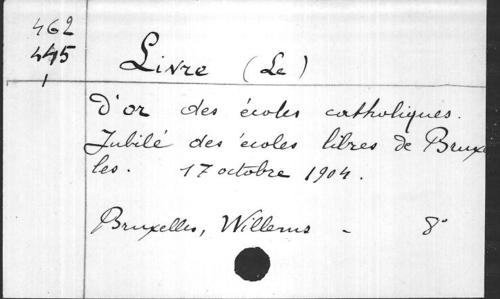 462
445
1
Livre (Le)
D'or des écoles catholiques.
Jubilé des écoles libres de Bruxe
les. 17 octobre 1904.
Bruxelles, Willems - 8°